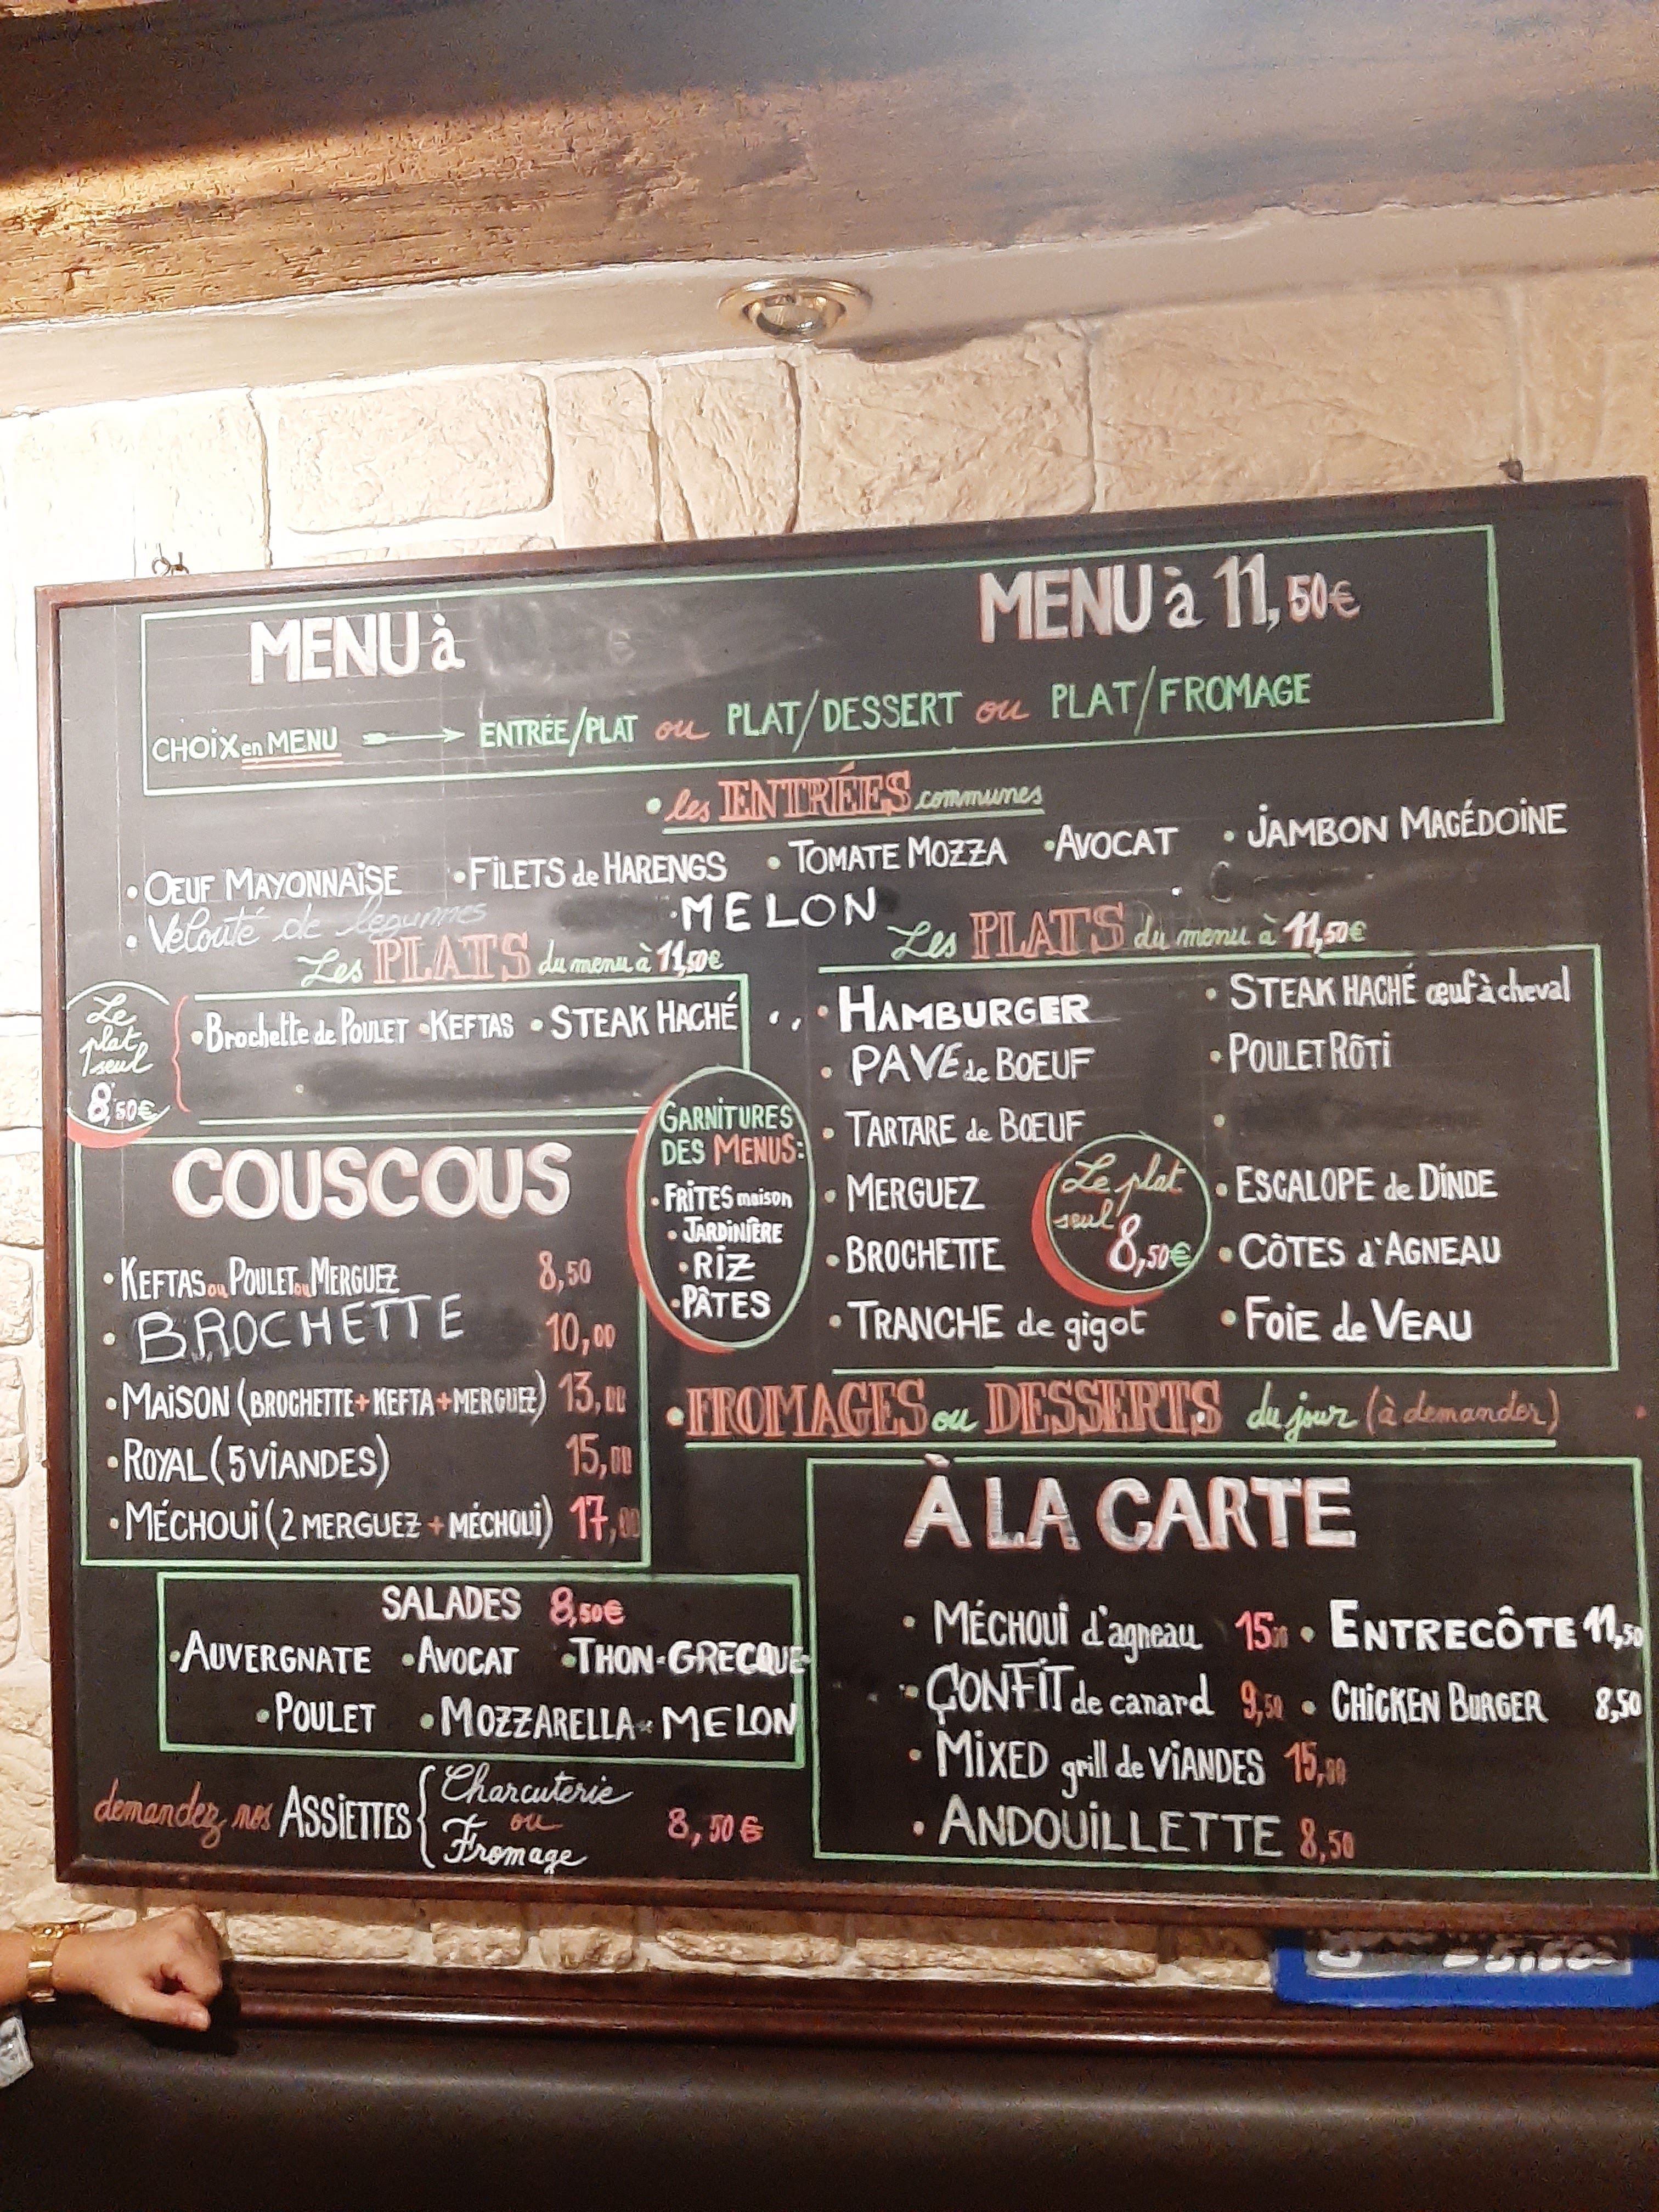 MENU à
MENU à 11,50€
CHOIX en MENU ENTRÉE/PLAT ou PLAT/DESSERT ou PLAT/FROMAGE
• les ENTRÉES communes
• OEUF MAYONNAISE • FILETS de HARENGS • TOMATE MOZZA • AVOCAT • JAMBON MACÉDOINE
• Velouté de legumes • MELON
Les PLATS du menu à 11,50€
Le plat seul 8,50€
• Brochette de POULET • KEFTAS • STEAK HACHÉ
Les PLATS du menu à 11,50€
• HAMBURGER • STEAK HACHÉ œuf à cheval
• PAVE de BOEUF • POULET RÔTI
• TARTARE de BOEUF
• MERGUEZ • ESCALOPE de DINDE
• BROCHETTE • CÔTES d'AGNEAU
• TRANCHE de gigot • FOIE de VEAU
Le plat
seul
8,50€
GARNITURES
DES MENUS:
• FRITES maison
• JARDINIÈRE
• RIZ
• PÂTES
COUSCOUS
• KEFTAS ou POULET ou MERGUEZ 8,50
• BROCHETTE 10,00
• MAISON (BROCHETTE + KEFTA + MERGUEZ) 13,00
• ROYAL (5 VIANDES) 15,00
• MÉCHOUI (2 MERGUEZ + MÉCHOUI) 17,00
• FROMAGES ou DESSERTS du jour (à demander)
SALADES 8,50€
• AUVERGNATE • AVOCAT • THON • GRECQUE
• POULET • MOZZARELLA • MELON
demandez nos ASSIETTES { Charcuterie
ou
Fromage
8,50€
À LA CARTE
• MÉCHOUI d'agneau 15,00 • ENTRECÔTE 11,50
• CONFIT de canard 9,50 • CHICKEN BURGER 8,50
• MIXED grill de VIANDES 15,00
• ANDOUILLETTE 8,50